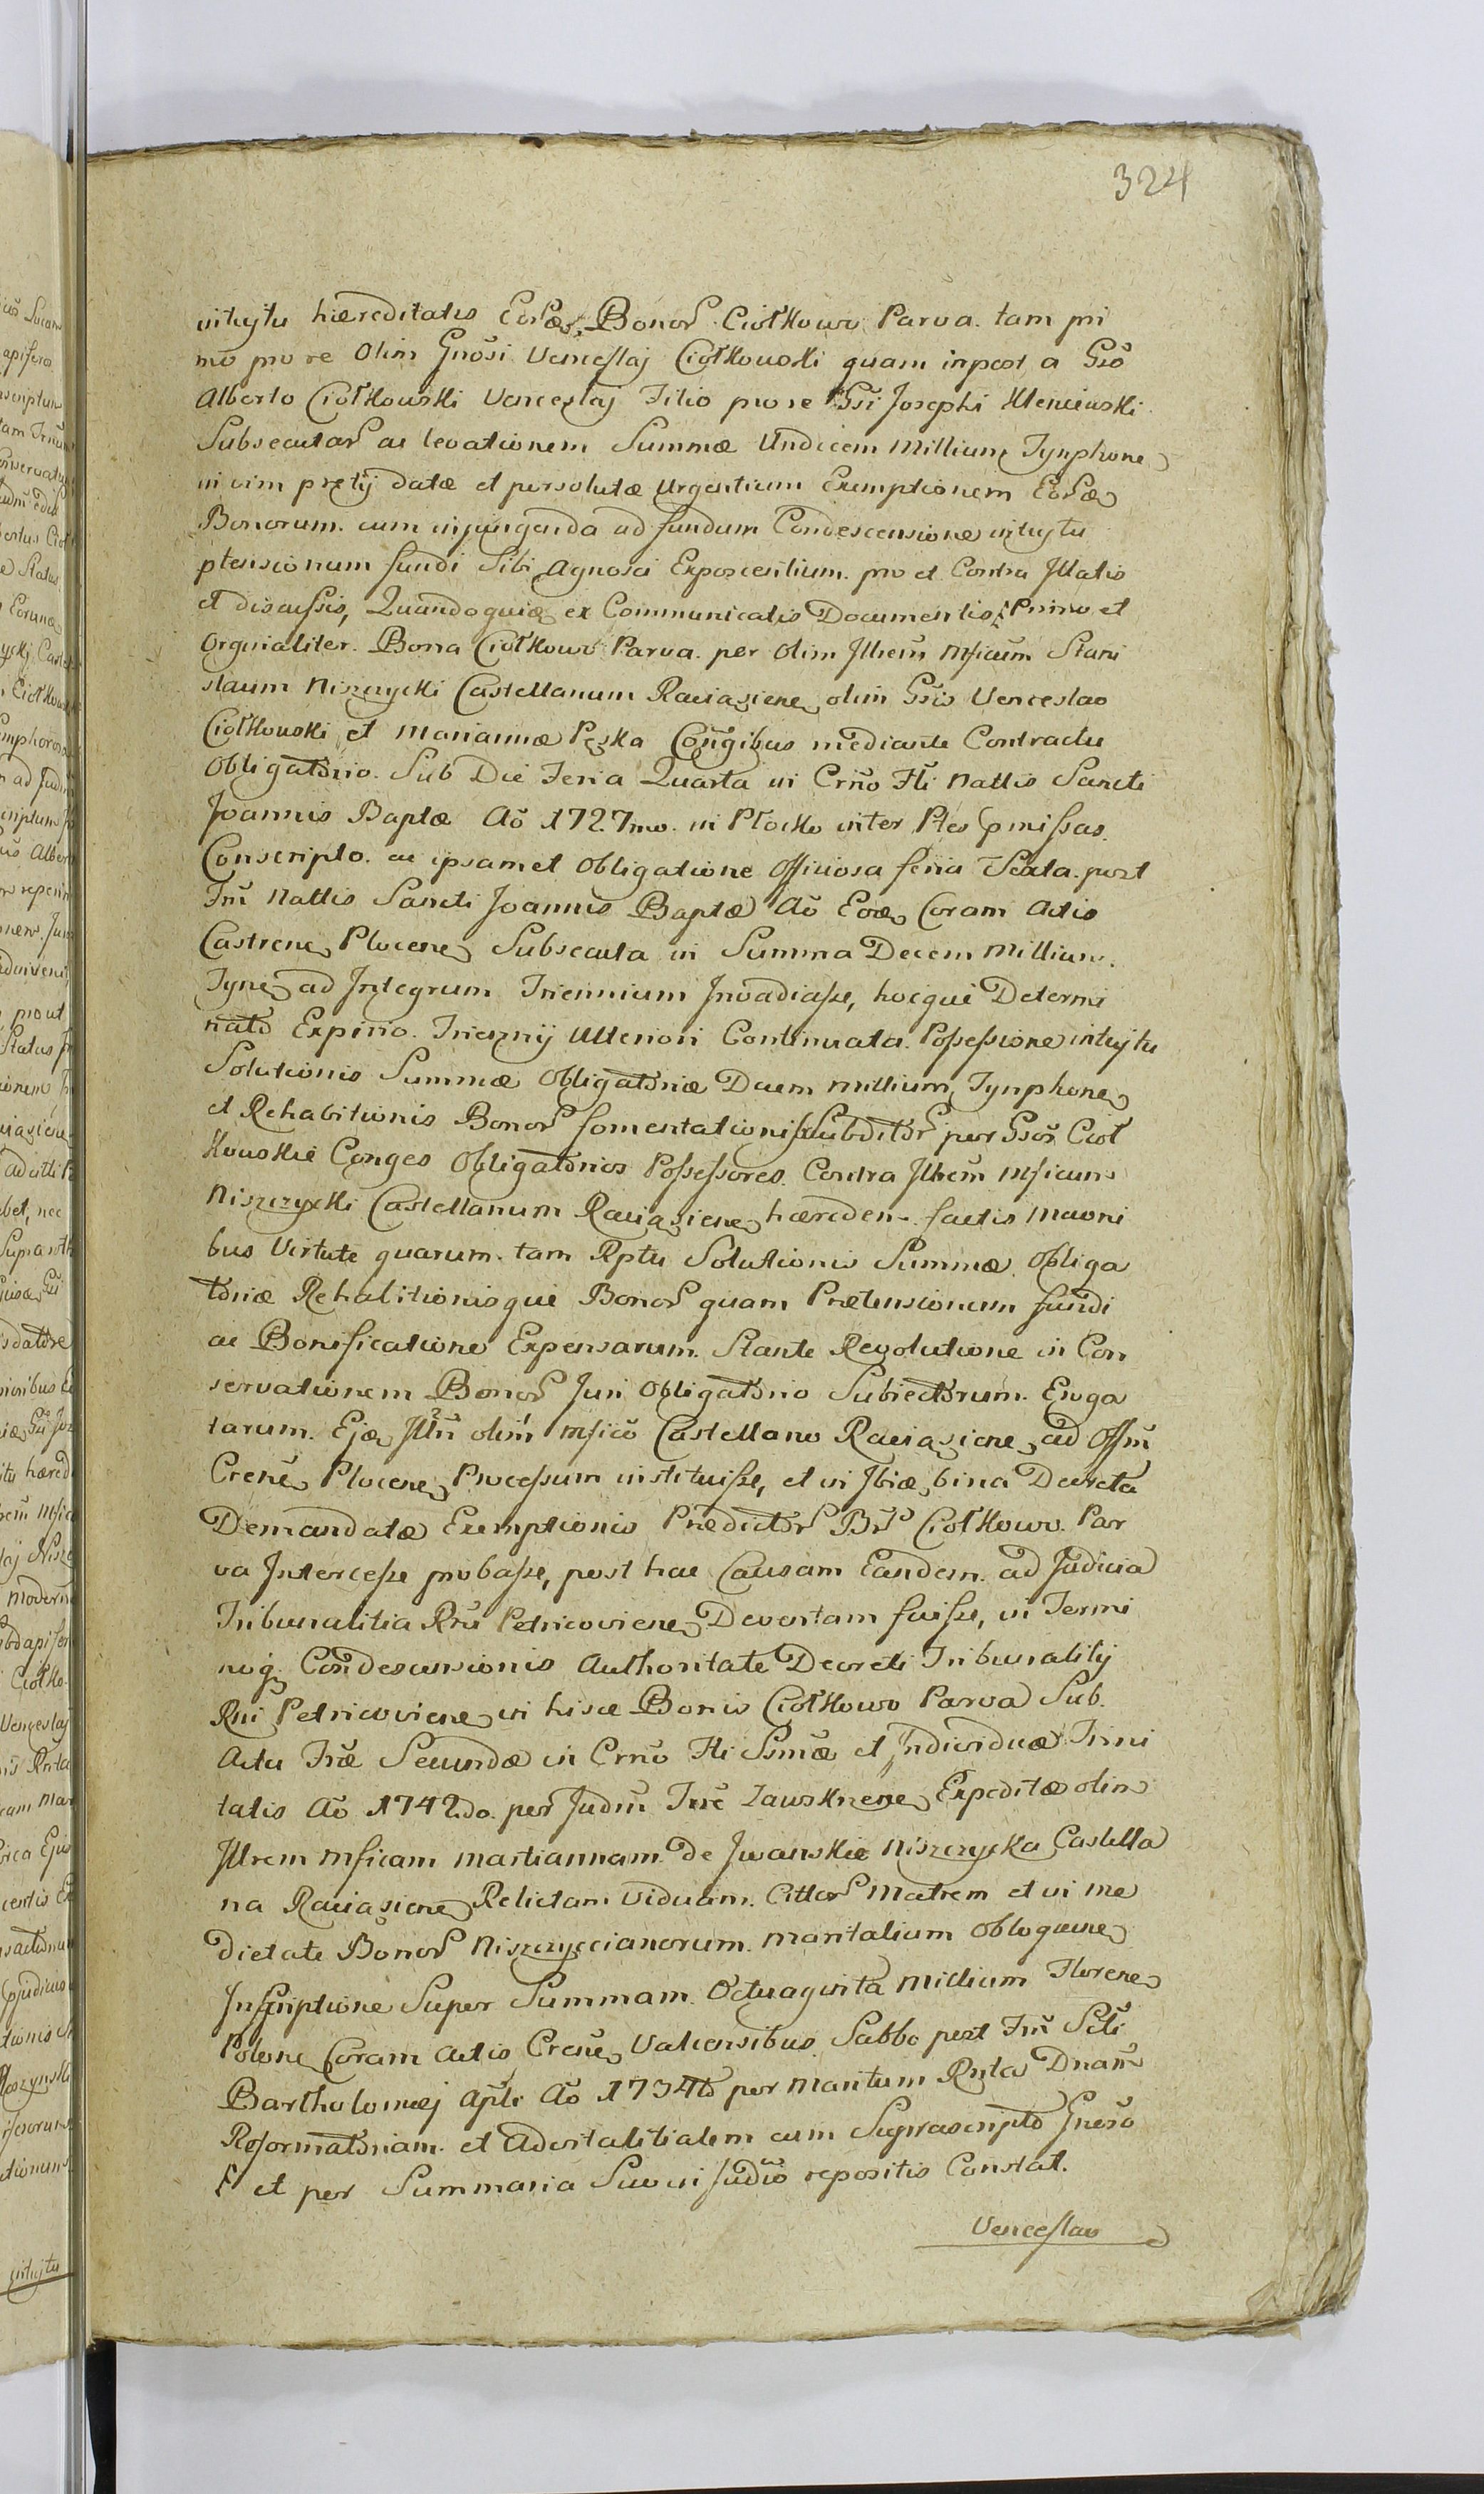 324
intuytu hæreditatis Eorđæ, Bonor Ciołkowo Parva. tam pri
mo pro re Olim Gnosi Venceslaj Ciołkowski quam in post a Gso
Alberto Ciołkowski Venceslaj Filio pro re Gsi Josephi Kleniewski
Subsecutar ac levationem Summæ Undecem Millium Tynphone
in vim pretij datæ et persolutæ Urgentium Exemptionem Eorđæ
Bonorum. cum injungenda ad fundum Condescensione intuytu
ptensionum fundi Sibi Agnosci Exposcentium. pro et Contra Illatis
et discussis, Quandoquidæ ex Communicatis Documentis, Primo et
Orginaliter. Bona Ciołkowo Parva. per Olim Illrem Mficum Stani
slaum Niszczycki Castellanum Raciąziene olim Gsis Venceslao
Ciołkowski et Mariannæ Pęska Congibus mediante Contractu
Obligatorio. Sub Die Feria Quarta in Crno Fti Nattis Sancti
Joannis Baptæ Ao 1727mo. in Płocko inter Ptes pmissas.
Conscripto. ac ipsamet Obligatione Officiosa feria Sexta. post
Fm Nattis Sancti Joannis Baptæ Ao Eođ Coram Actis
Castrene Plocene Subsecuta in Summa Decem Millium.
Tyne ad Integrum Triennium Invadiasse, hocque Determi
nato Expirio. Triennij Ulteriori Continuata. Possessione intuytu
Solutionis Summæ Obligatoriæ Decem millium Tynphone
et Rehabitionis Bonor fomentationis Subditor per Gsos Cioł
kowskie Conges Obligatorios Possessores. Contra Illrem Mficum
Niszczycki Castellanum Raciąziene hæredem. factis Mavni
bus Virtute quarum. tam Rptu Solutionis Summæ Obliga
toriæ Rehabitionisque Bonor quam Prætensionem fundi
ac Bonificatione Expensarum. Stante Revolutione in Con
servationem Bonor Juri Obligatorio Subiectorum. Eroga
tarum. Ejđ Illri olim Mfico Castellano Raciąziene ad Offm
Crene Plocene Processum instituisse, et in Ibidæ bina Decreta
Demandatæ Exemptionis Prædictor Br Ciołkowo. Par
va Intercesse probasse, post hac Causam Eandem. ad Judicia
Tribunalitia Rni Petricoviene Devertam fuisse, in Termi
noq. Condescensionis Authoritate Decreti Tribunalitij
Rni Petricoviene in hisce Bonis Ciołkowo Parva Sub.
Actu Fræ Secundæ in Crno Fti Ssmæ et Individuæ Trini
tatis Ao 1742do. per Judm Trre Zawskrzene Expeditæ olim
Illrem Mficam Martiannam de Iwanskie Niszczycka Castella
na Raciąziene Relictam Viduam. Cittor Matrem et in me
dietate Bonor Niszczyccianorum. Maritalium Obloquene
Inscriptione Super Summam. Octuaginta Millium Florene
Polone Coram Actis Crene Valiensibus. Sabbo post Fm Scti
Bartholomej Apli Ao 1734to per Maritum Rnta Dnam
Reformatoriam. et Advitalitialem cum Suprascripto Gneso
et per Summaria Suo in Judio repositis Constat.
Venceslao